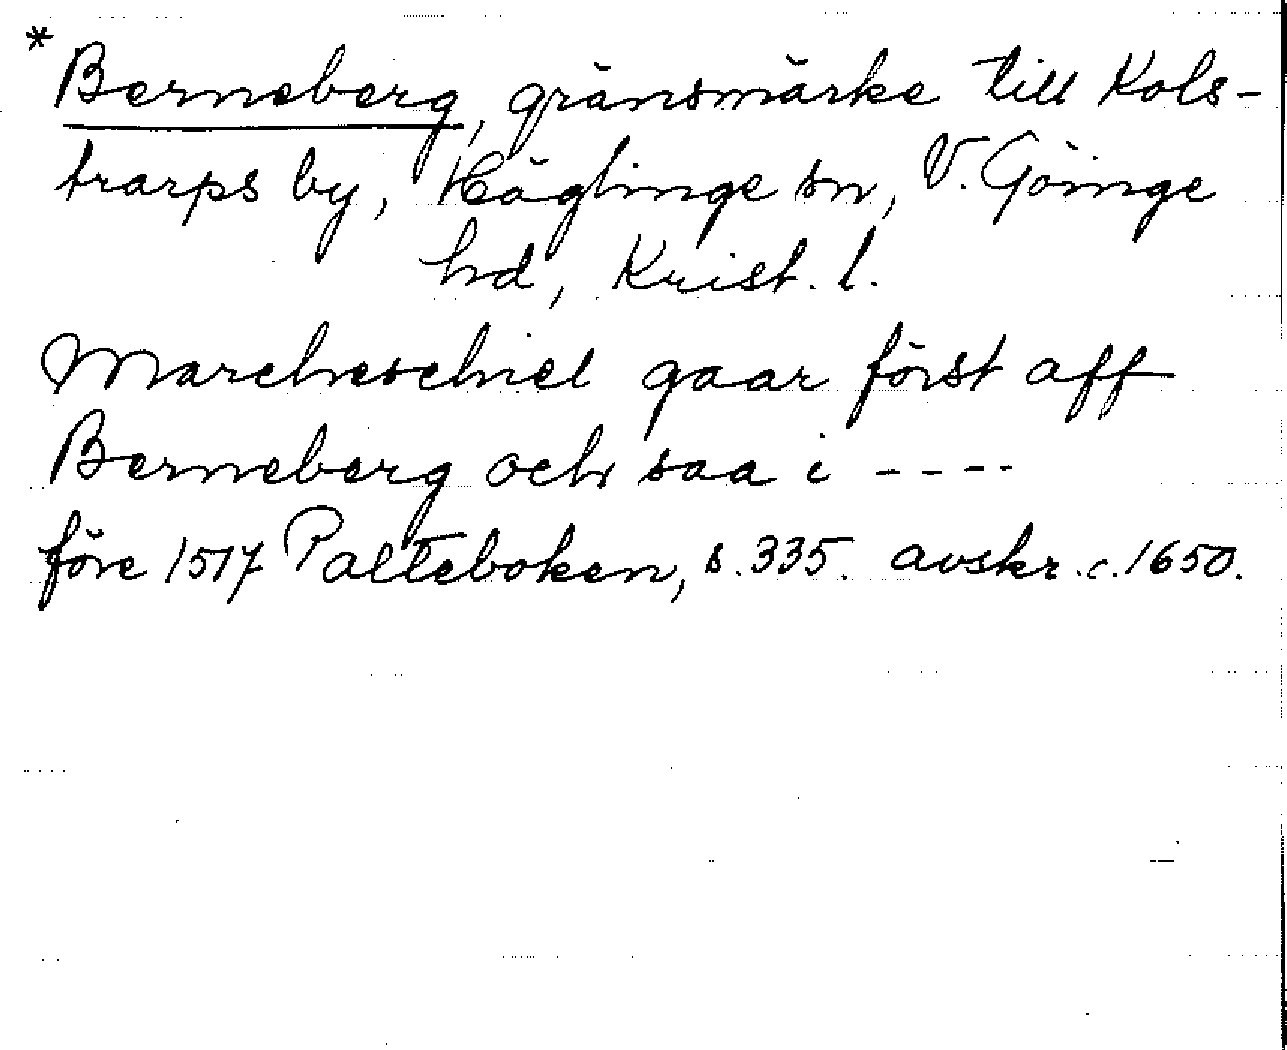 *Berneberg, gränsmärke till Kols-
trarps by, Häglinge sn, V. Göinge
hd, Krist. l.
Marcheschiel gaar först aff
Berneberg och saa i ----
före 1517 Palteboken, s. 335. avskr. c. 1650.